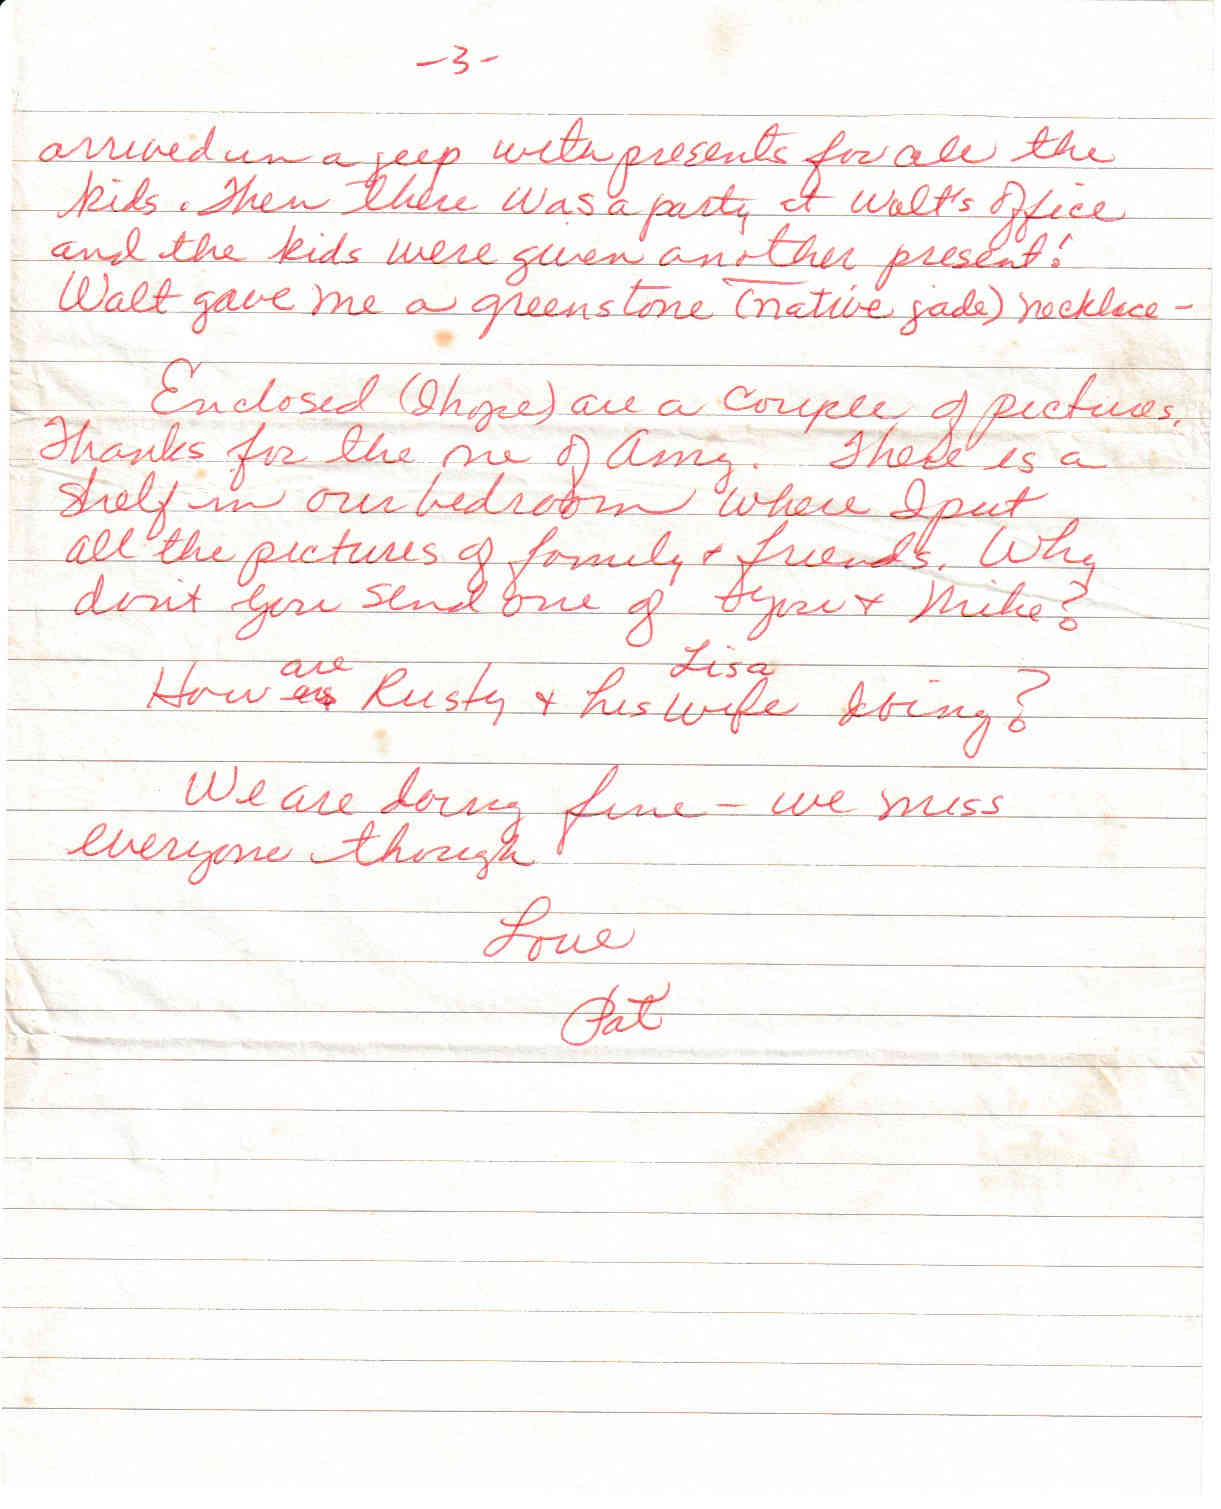 -3-
arrived in a jeep with presents for all the
kids. Then there was a party at Walt's office
and the kids were given another present!
Walt gave me a greenstone (native jade) necklace -
Enclosed (I hope) are a couple of pictures.
Thanks for the one of Amy. There is a
shelf in our bedroom where I put
all the pictures of family & friends. Why
don't you send one of you & Mike?
are Lisa
How is Rusty & his wife doing?
We are doing fine - we miss
everyone though
Love
Pat